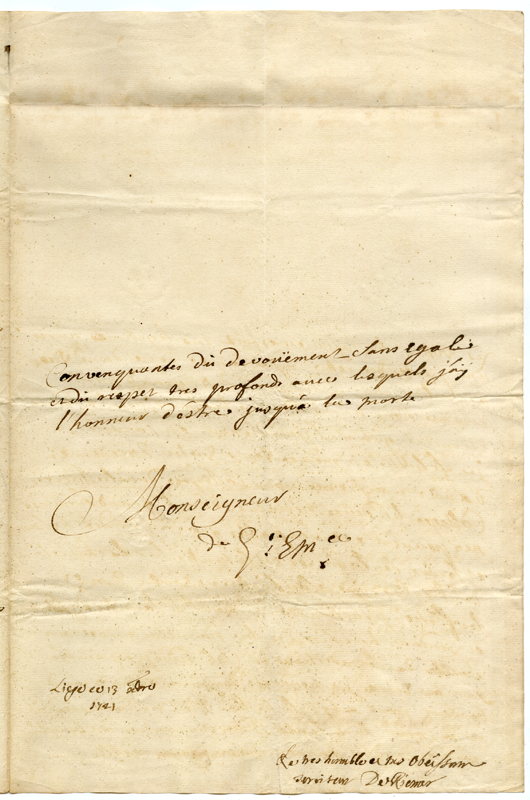 Convenquantes du devouëment sans egale
et du respet tres profond avec lesquels j'ay
l'honneur d'estre jusqu'a la morte
Monseigneur
de S: Em ce
Liege ce 13
1741
Le tres humble et tres obeissant
serviteur De